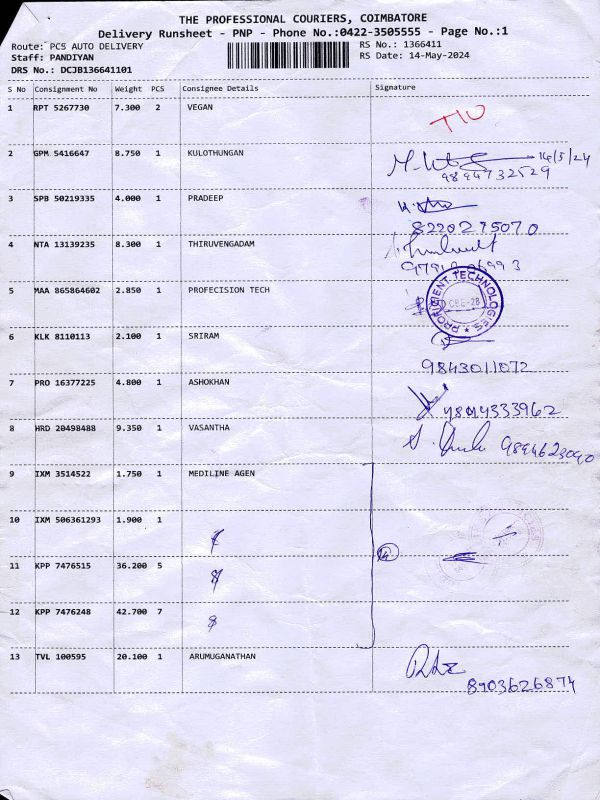 THE PROFESSIONAL COURIERS, COIMBATORE
Delivery Runsheet - PNP - Phone No.:0422-3505555 - Page No.:1
Route: PC5 AUTO DELIVERY
RS No.: 1366411
Staff: PANDIYAN
RS Date: 14-May-2024
DRS No.: DCJB136641101
S No Consignment No Weight PCS Consignee Details Signature
1 RPT 5267730 7.300 2 VEGAN
2 GPM 5416647 8.750 1 KULOTHUNGAN 14/5/24
9894732529
3 SPB 50219335 4.000 1 PRADEEP
8220295070
4 NTA 13139235 8.300 1 THIRUVENGADAM
5 MAA 865864602 2.850 1 PROFECISION TECH
PROMINENT TECHNOLOGIES
CBE-28
6 KLK 8110113 2.100 1 SRIRAM
9843011072
7 PRO 16377225 4.800 1 ASHOKHAN
9894333962
8 HRD 20498488 9.350 1 VASANTHA
9894623090
9 IXM 3514522 1.750 1 MEDILINE AGEN
10 IXM 506361293 1.900 1
11 KPP 7476515 36.200 5
14
12 KPP 7476248 42.700 7
13 TVL 100595 20.100 1 ARUMUGANATHAN
8903626874